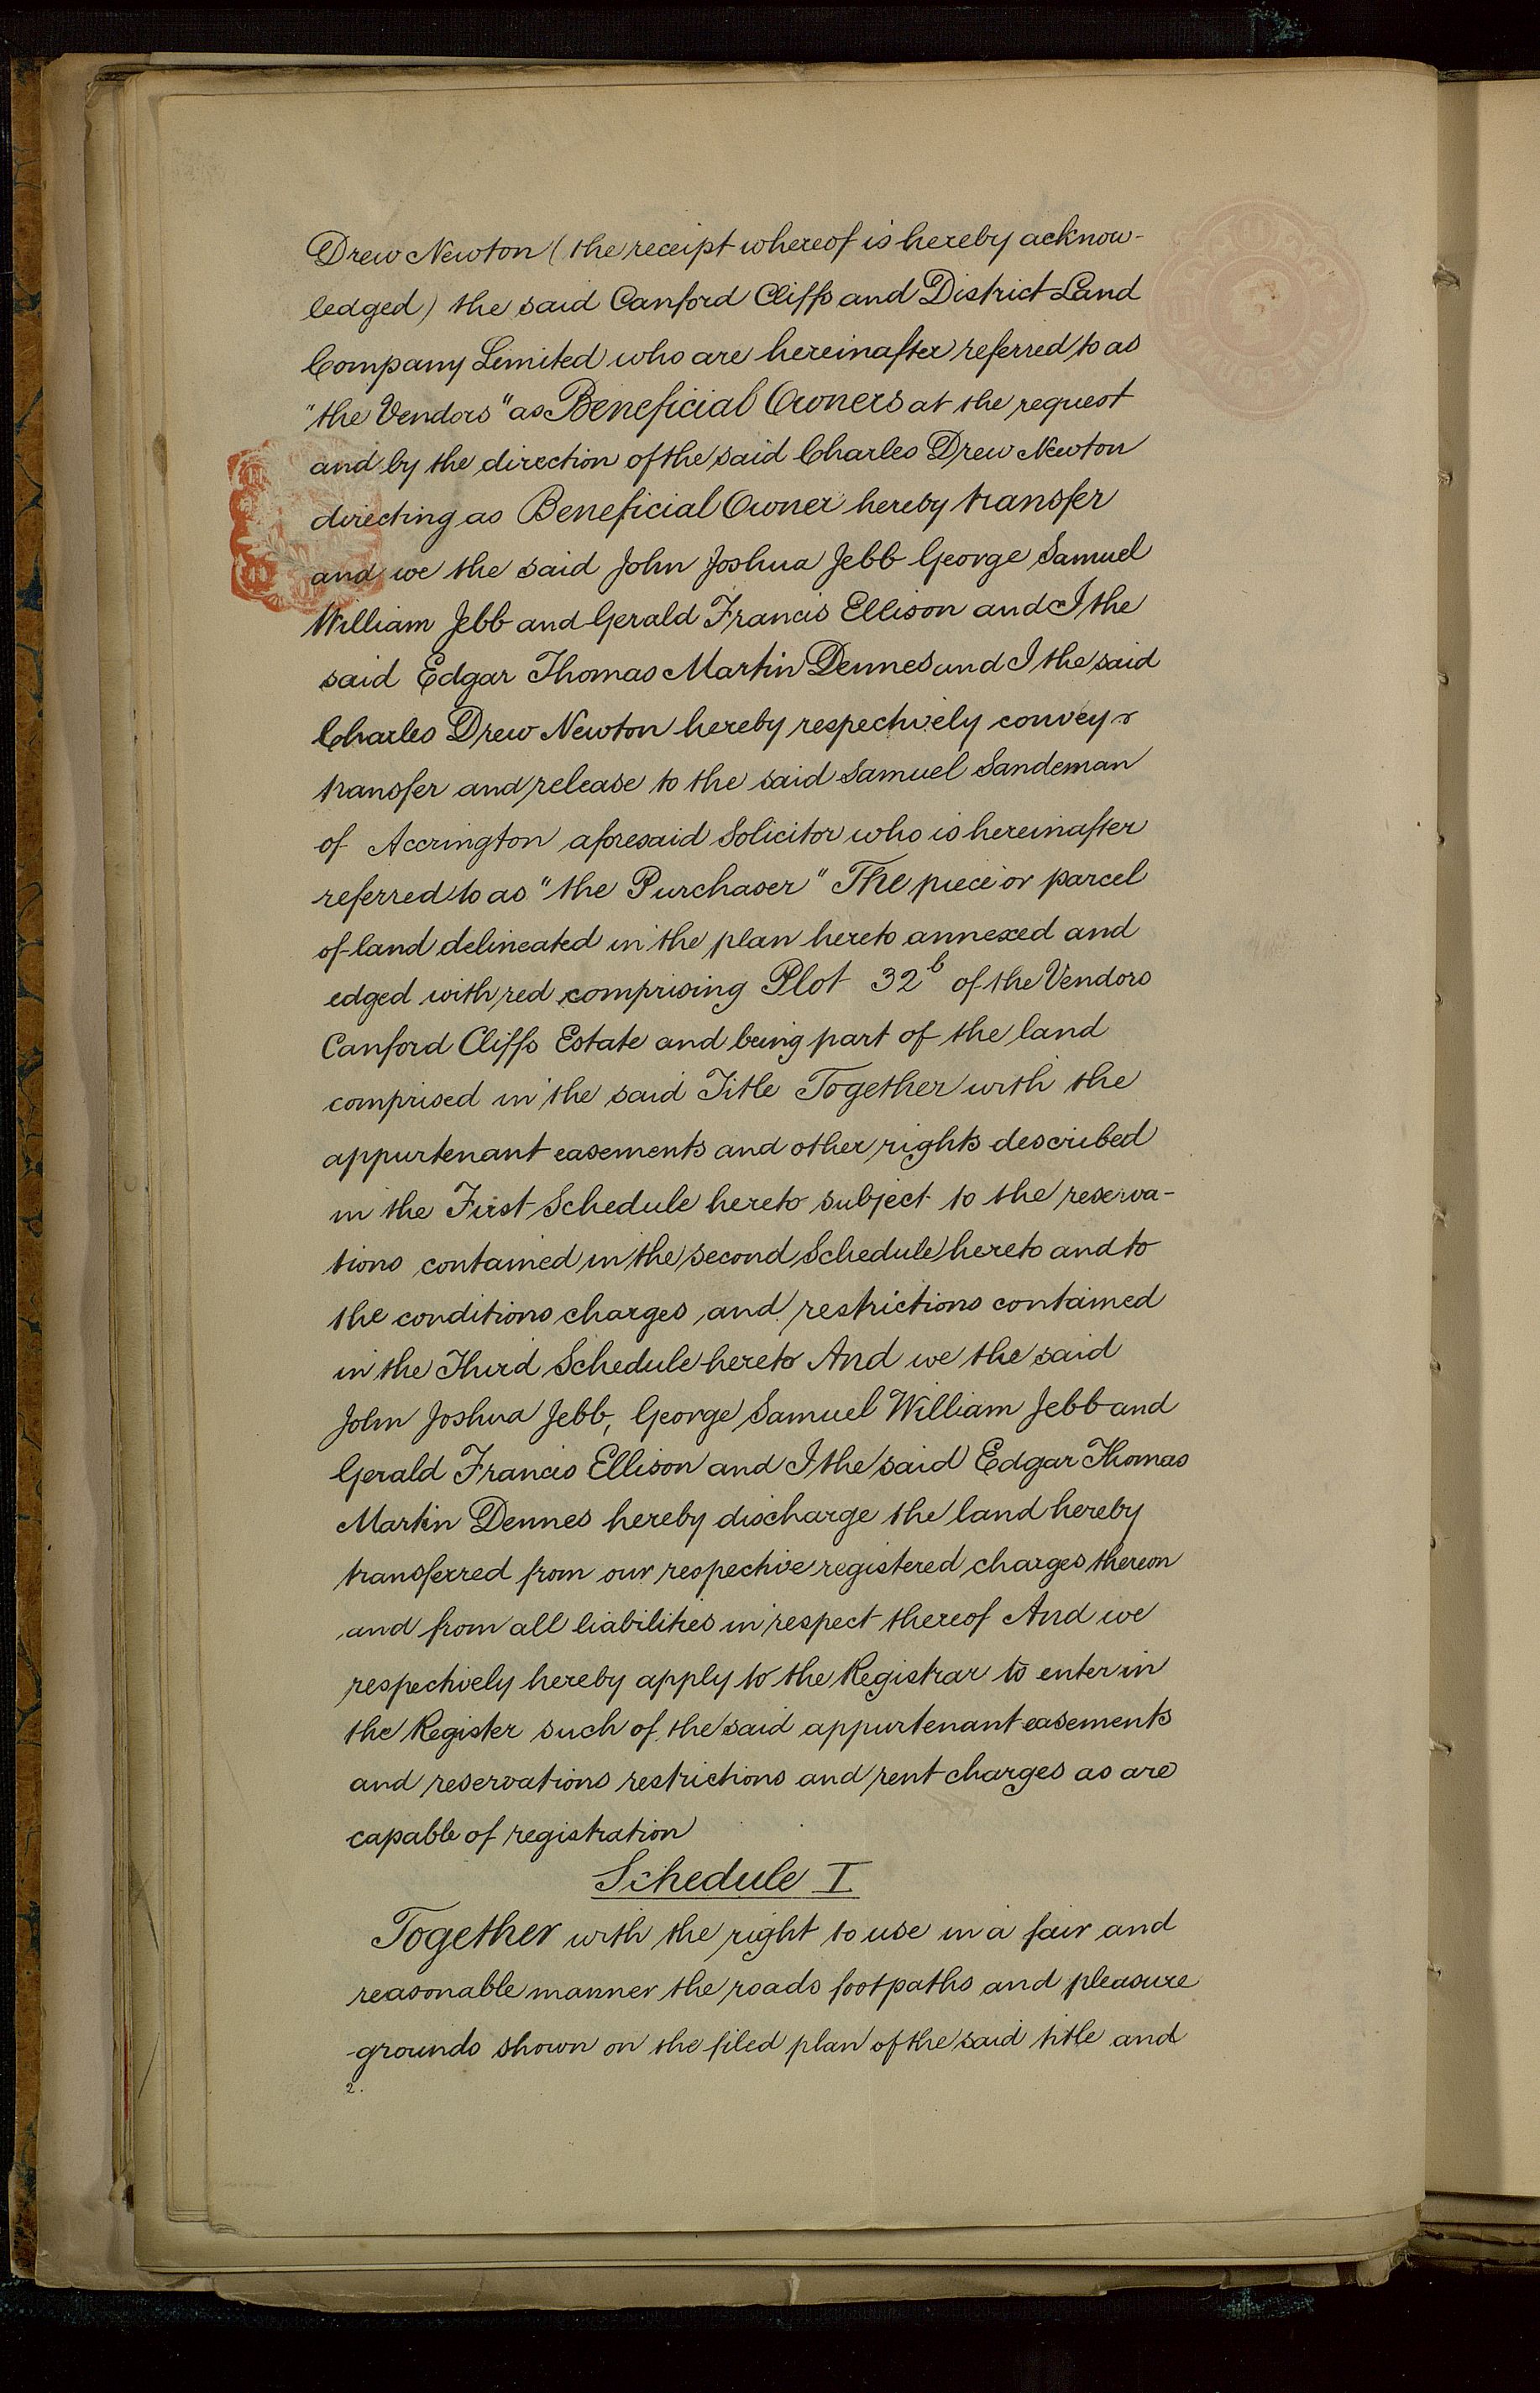 Drew Newton (the receipt whereof is hereby acknow-
ledged) the said Canford Cliffs and District Land
Company Limited who are hereinafter referred to as
"the Vendors" as Beneficial Owners at the request
and by the direction of the said Charles Drew Newton
directing as Beneficial Owner hereby transfer
and we the said John Joshua Jebb George Samuel
William Jebb and Gerald Francis Ellison and I the
said Edgar Thomas Martin Dennes and I the said
Charles Drew Newton hereby respectively convey &
transfer and release to the said Samuel Sandeman
of Accrington aforesaid Solicitor who is hereinafter
referred to as "the Purchaser" The piece or parcel
of land delineated in the plan hereto annexed and
edged with red comprising Plot 32b of the Vendors
Canford Cliffs Estate and being part of the land
comprised in the said Title Together with the
appurtenant easements and other rights described
in the First Schedule hereto subject to the reserva-
tions contained in the second Schedule hereto and to
the conditions charges and restrictions contained
in the Third Schedule hereto And we the said
John Joshua Jebb, George Samuel William Jebb and
Gerald Francis Ellison and I the said Edgar Thomas
Martin Dennes hereby discharge the land hereby
transferred from our respective registered charges thereon
and from all liabilities in respect thereof And we
respectively hereby apply to the Registrar to enter in
the Register such of the said appurtenant easements
and reservations restrictions and rent charges as are
capable of registration
Schedule I
Together with the right to use in a fair and
reasonable manner the roads footpaths and pleasure
grounds shown on the filed plan of the said title and
2.